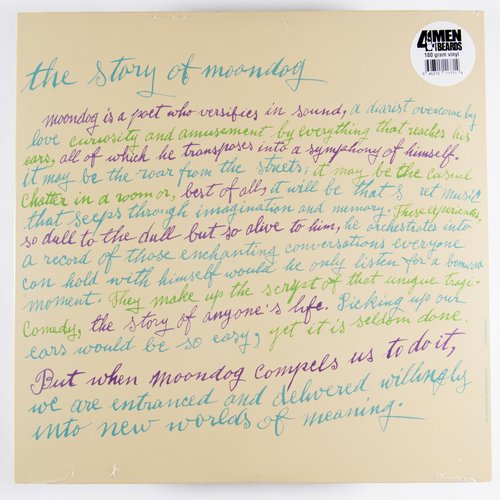 4 MEN
WITH
BEARDS
180 gram vinyl
the story of moondog
moondog is a poet who versifies in sound, a diarist overcome by
love curiosity and amusement by everything that reaches his
ears, all of which he transposes into a symphony of himself.
it may be the roar from the streets; it may be the casual
chatter in a room or, best of all, it will be that s ret music
that seeps through imagination and memory. These experiences,
so dull to the dull but so alive to him, he orchestrates into
a record of those enchanting conversations everyone
can hold with himself would he only listen for a bemused
moment. They make up the script of that unique tragi-
comedy, the story of anyone's life. Picking up our
ears would be so easy, yet it is seldom done.
But when moondog compels us to do it,
we are entranced and delivered willingly
into new worlds of meaning.